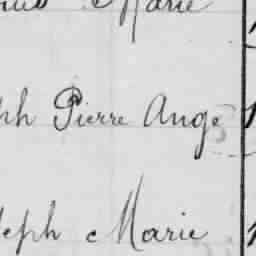 Marie
ph Pierre Ange
seph Marie